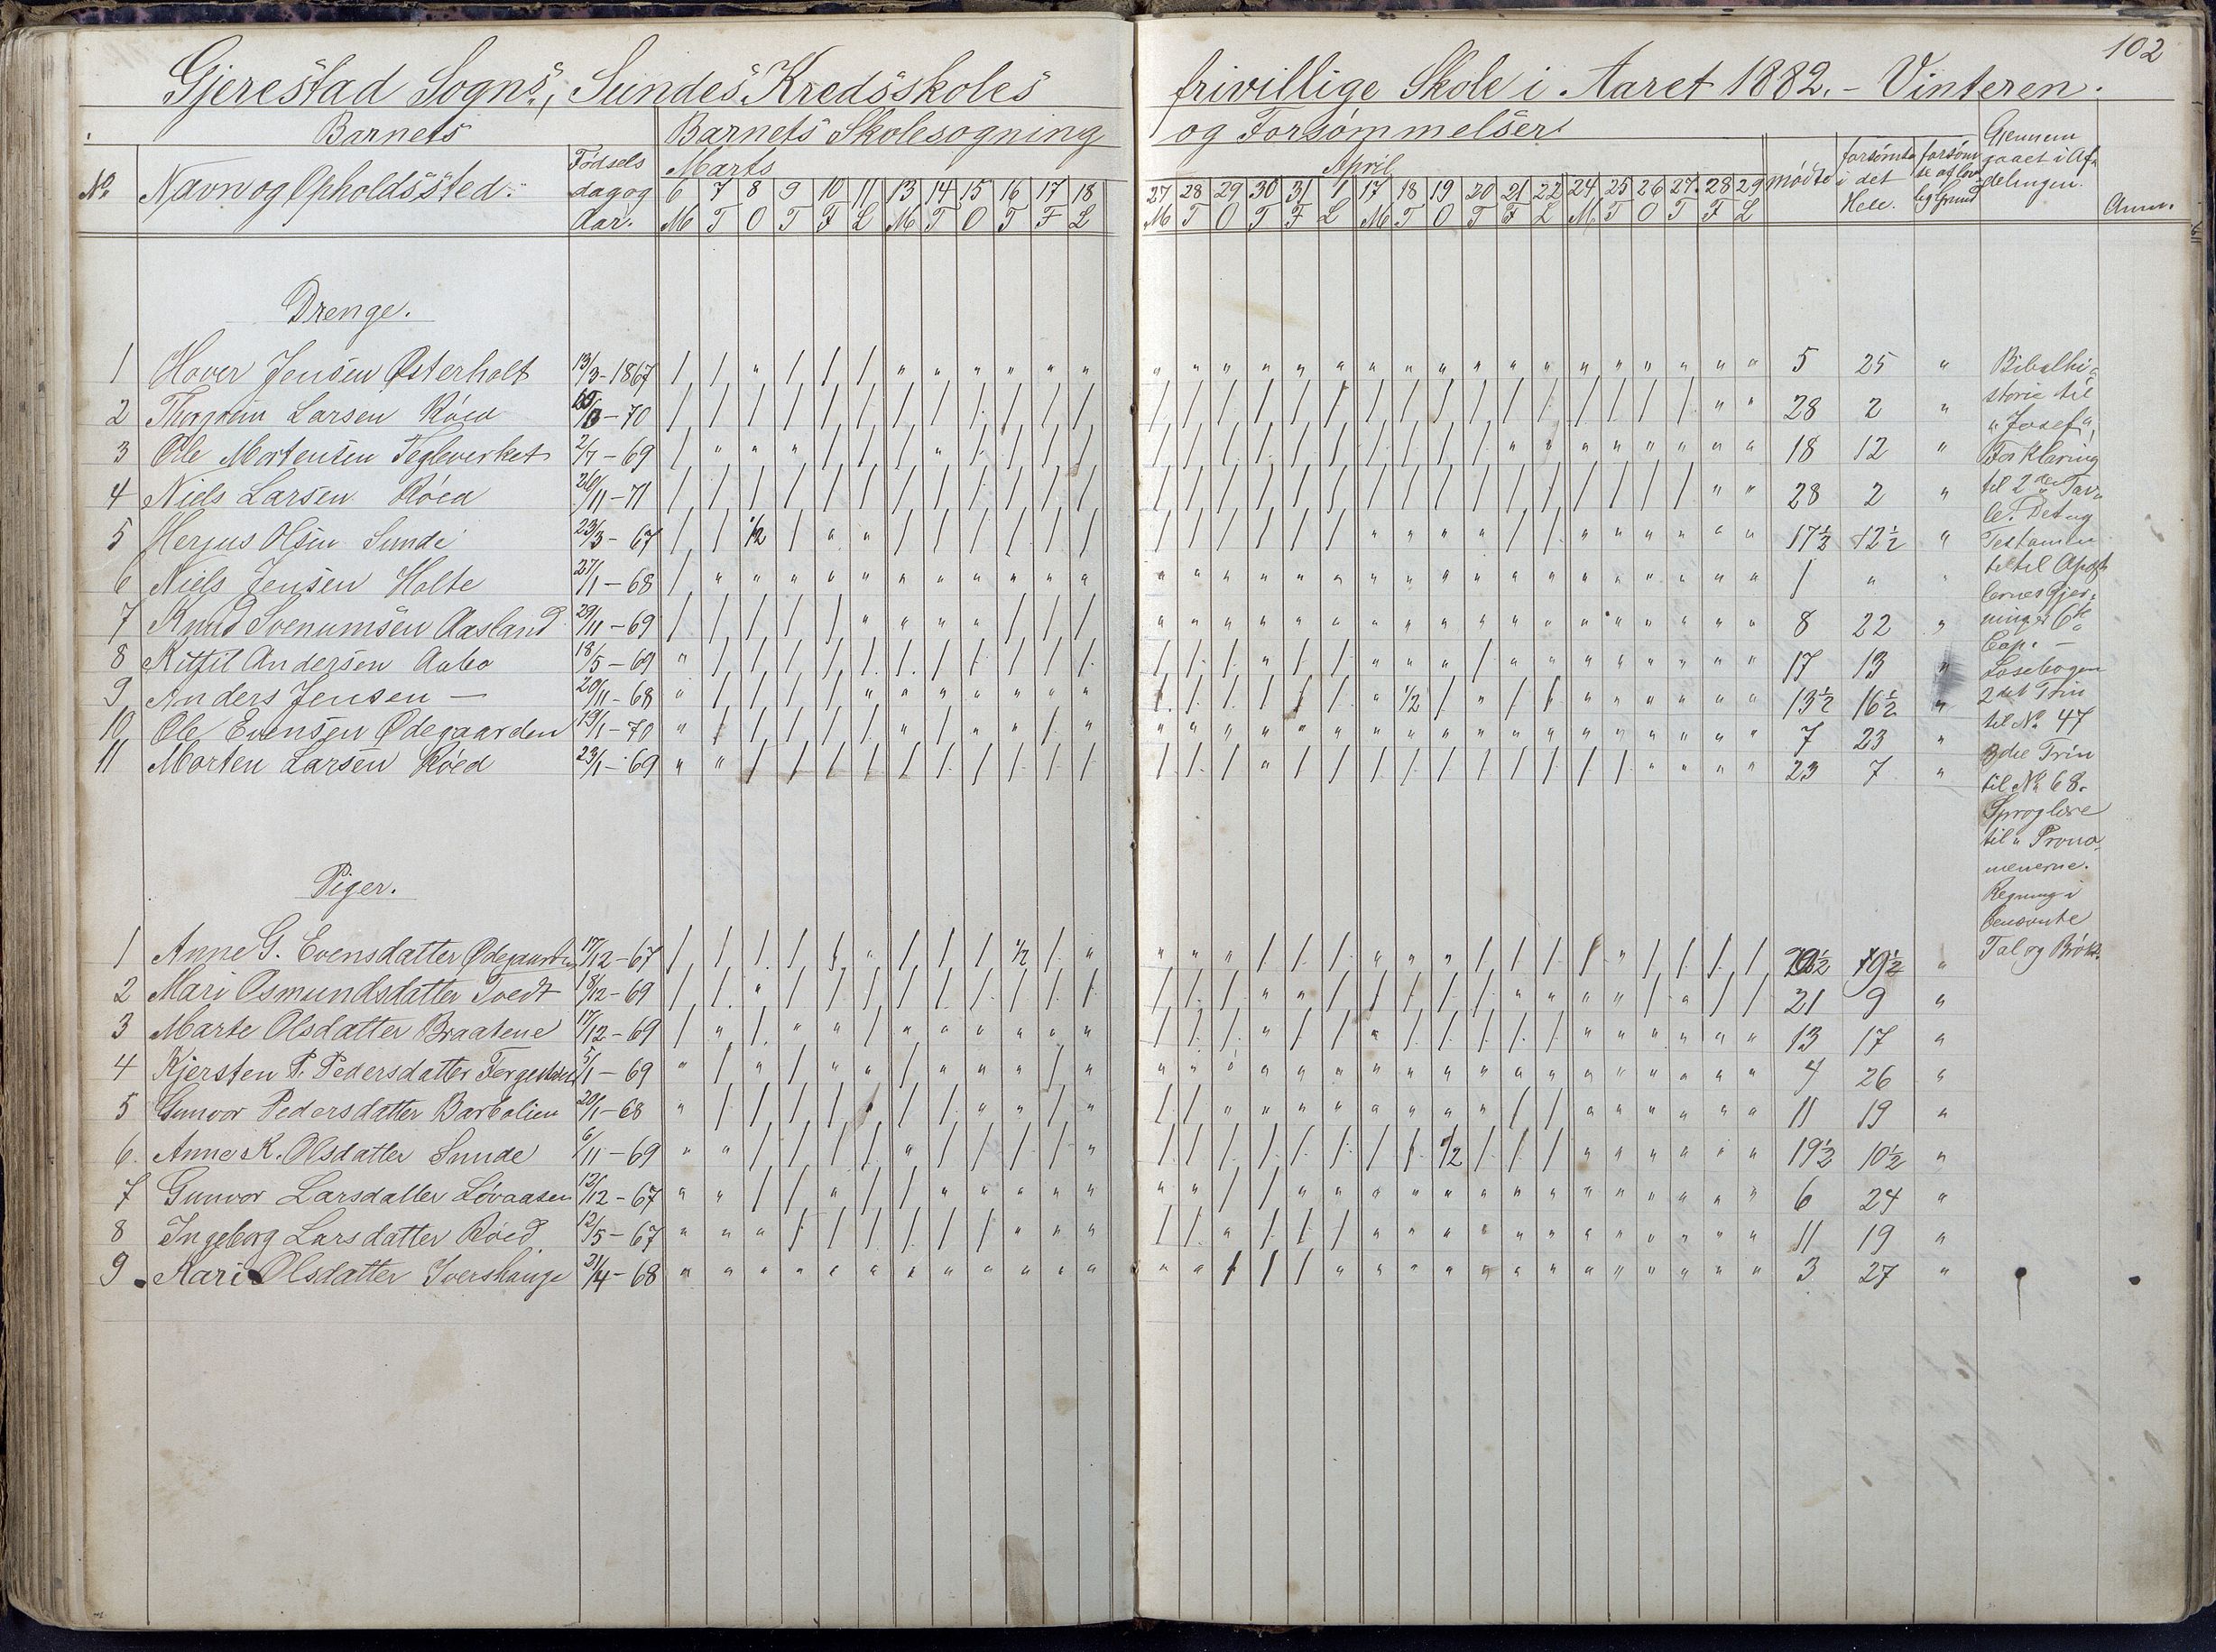 102
Gjerestad Sogns, Sundes Kredsskoles frivillige Skole i Aaret 1882. – Vinteren.
Barnets Barnets Skolesøgning og Forsømmelser.
No Navn og Opholdssted. Fødsels dag og Aar. Marts April mødte forsømte i det Hele. forsømte af lovlig Grund Gjennemgaaet i Afdelingen. Anm.
6 7 8 9 10 11 13 14 15 16 17 18 27 28 29 30 31 1 17 18 19 20 21 22 24 25 26 27 28 29
M T O T F L M T O T F L M T O T F L M T O T F L M T O T F L
Drenge.
1 Hover Jensen Østerholt 13/3 - 1867 / / " / / / " " " " " " " " " " " " " " " " " " " " " " " " 5 25 "
2 Larsen Røed - 70 / / / / / / / / / / / / / / / / / / / / / / / / / / / / " " 28 2 "
3 Ole Mortensen Teglverket 2/7 - 69 / " " " / / / " / / / / / / / / / / / / / / " " " " " " " " 18 12 "
4 Niels Larsen Røed 26/11 - 71 / / / / / / / / / / / / / / / / / / / / / / / / / / / / " " 28 2 "
5 Herjus Olsen Sunde 23/3 - 67 / / 1/2 / " " / / / / / / / / / / / / " " " " / / " " " " " " 17 1/2 12 1/2 "
6 Niels Jensen Holte 27/1 - 68 / " " " " " " " " " " " " " " " " " " " " " " " " " " " " " 1 " "
7 Knud Svenumsen Aasland 29/11 - 69 / / / / / " " " " / / / " " " " " " " " " " " " " " " " " " 8 22 "
8 Kittil Andersen Aabø 18/5 - 69 " / / / / / / / / / / / / / / " / / " " " / " " " " " " " " 17 13 "
9 Anders Jensen — 20/11 - 68 " / / / / " " " " " " " / / / / / / " 1/2 / " / / " " " " " " 13 1/2 16 1/2 "
10 Ole Evensen Ødegaarden 19/1 - 70 " / / / / / " / " " / " " " " " " " " " " " " " " " " " " " 7 23 "
11 Morten Larsen Røed 23/1 - 69 " " / / / / / / / / / / / / / " / / / / / / / / / / " " " " 23 7 "
Piger.
1 Anne G. Evensdatter 17/12 - 67 / / / / / " / / / 1/2 / " " " " / / / " " " / / / / " / / / / 9 1/2 "
2 Mari Osmundsdatter Tvedt 18/12 - 69 / / " / / / / / / / / / / / / " " / / / / / " " " " / " / / 21 9 "
3 Marte Olsdatter Braatene 17/12 - 69 / " / " " / " " " " " " / / / " / / " / / / / / " " " " " " 13 17 "
4 Kjersten P. Pedersdatter 5/1 - 69 " / " / " " / " " " / " " " " " " " " " " " " " " " " " " " 4 26 "
5 Gunvor Pedersdatter Barbolien 20/1 - 68 " / / / / / / / " " / " / / " " " " " " " " / / " " " " " " 11 19 "
6. Anne K. Olsdatter Sunde 6/11 - 69 " " / / / / " / / / / " / / / / / / / / 1/2 / / / " " " " " " 19 1/2 10 1/2 "
7 Gunvor Larsdatter Løvaasen 12/12 - 67 " " / / " / / " " " " " " " / / " " " " " " " " " " " " " " 6 24 "
8 Ingeborg Larsdatter Røed 12/5 - 67 " " " / / / / / / " " " / / " / / / " " " " " " " " " " " " 11 19 "
9 Kari Olsdatter Iverskauge 21/4 - 68 " " " " " " " " " " " " " " / / / " " " " " " " " " " " " " 3 27 "
Bibelhi-
storie til
"Josef",
Forklaring
til 2den Tav-
le. Det ny
Testamen-
te til Apost-
lernes Gjer-
ninger 6te
Cap. —
Læsebogen
2det Trin
til No 47
3die Trin
til No 68.
Sproglære
til "Prono-
menerne.
Regning i
benævnte
Tal og Brøk.